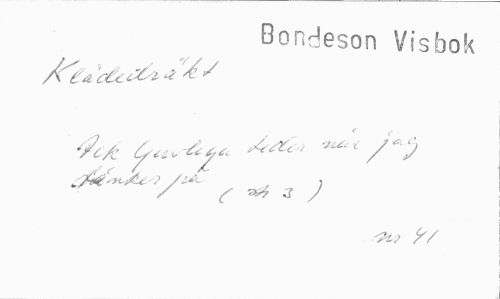 Bondeson Visbok
Klädedräkt
Ack ljuvliga tider när jag
tänker på
( str 3 )
nr 41